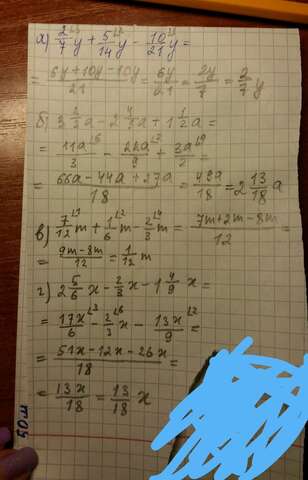 а) 2/7 y + 5/14 y - 10/21 y =
= (6y+10y-10y)/21 = 6y/21 = 2y/7 = 2/7 y
б) 3 2/3 a - 2 4/9 a + 1 1/2 a =
= 11a/3 ⌊6 - 22a/9 ⌊2 + 3a/2 ⌊9 =
= (66a-44a+27a)/18 = 49a/18 = 2 13/18 a
в) 7/12 ⌊1 m + 1/6 ⌊2 m - 2/3 ⌊4 m = (7m+2m-8m)/12
= (9m-8m)/12 = 1/12 m
г) 2 5/6 x - 2/3 x - 1 4/9 x =
= 17x/6 ⌊3 - 2/3 x - 13x/9 ⌊2 =
= (51x-12x-26x)/18 =
= 13x/18 = 13/18 x
50м